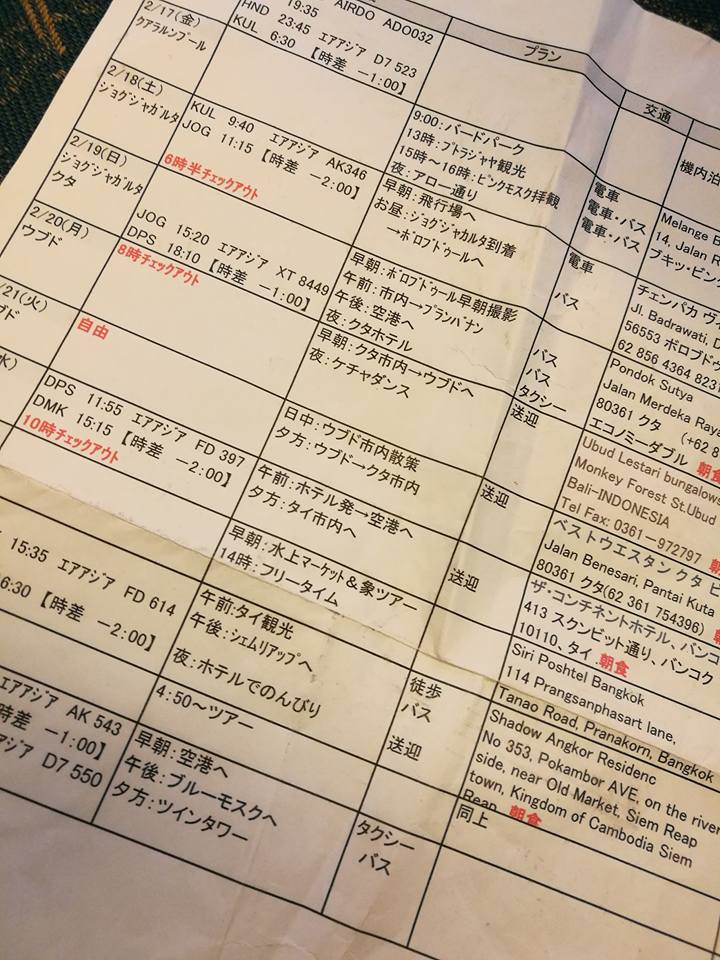 プラン
交通
2/17(金)
クアラルンプール
19:35 AIRDO ADO032
HND 23:45 エアアジア D7 523
KUL 6:30 【時差 -1:00】
機内泊
2/18(土)
ジョグジャカルタ
KUL 9:40 エアアジア AK346
JOG 11:15 【時差 -2:00】
6時半チェックアウト
9:00:バードパーク
13時:プトラジャヤ観光
15時~16時:ピンクモスク拝観
夜:アロー通り
早朝:飛行場へ
お昼:ジョグジャカルタ到着
→ボロブドゥールへ
電車
電車・バス
電車・バス
電車
バス
Melange B
14, Jalan R
ブキッ・ビン
2/19(日)
ジョグジャカルタ
クタ
JOG 15:20 エアアジア XT 8449
DPS 18:10 【時差 -1:00】
8時チェックアウト
早朝:ボロブドゥール早朝撮影
午前:市内→プランバナン
午後:空港へ
夜:クタホテル
バス
バス
タクシー
チェンパカ ヴ
Jl. Badrawati, D
56553 ボロブドゥ
62 856 4364 823
2/20(月)
ウブド
早朝:クタ市内→ウブドへ
夜:ケチャダンス
送迎
Pondok Sutya
Jalan Merdeka Raya
80361 クタ (+62 8
エコノミーダブル 朝食
21(火)
ブド
自由
日中:ウブド市内散策
夕方:ウブド→クタ市内
送迎
Ubud Lestari bungalows
Monkey Forest St.Ubud
Bali-INDONESIA
Tel Fax: 0361-972797
水)
DPS 11:55 エアアジア FD 397
DMK 15:15 【時差 -2:00】
10時チェックアウト
午前:ホテル発→空港へ
夕方:タイ市内へ
送迎
ベストウエスタン クタ ビ
Jalan Benesari, Pantai Kuta
80361 クタ(62 361 754396)
早朝:水上マーケット&象ツアー
14時:フリータイム
ザ・コンチネントホテル、バンコ
413 スクンビット通り、バンコク
10110、タイ 朝食
15:35 エアアジア FD 614
6:30 【時差 -2:00】
午前:タイ観光
午後:シェムリアップへ
夜:ホテルでのんびり
徒歩
バス
送迎
Siri Poshtel Bangkok
114 Prangsanphasart lane,
Tanao Road, Pranakorn, Bangkok
4:50~ツアー
Shadow Angkor Residenc
No 353, Pokambor AVE, on the river
side, near Old Market, Siem Reap
town, Kingdom of Cambodia Siem
Reap 朝食
エアアジア AK 543
時差 -1:00】
アジア D7 550
早朝:空港へ
午後:ブルーモスクへ
夕方:ツインタワー
タクシー
バス
同上